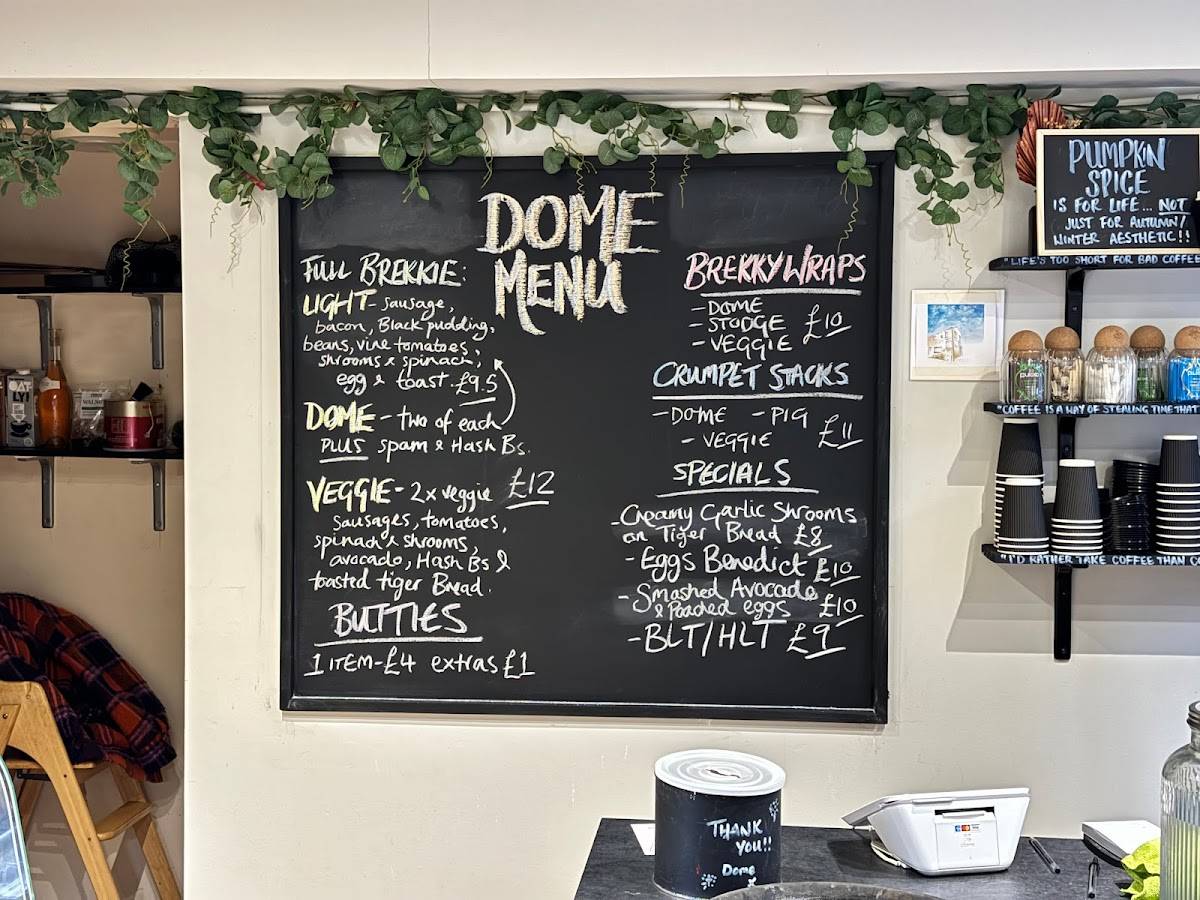 DOME
MENU
FULL BREKKIE:
LIGHT - sausage,
bacon, Black pudding,
beans, vine tomatoes,
shrooms & spinach,
egg & toast - £9.5
DOME - two of each
PLUS spam & Hash Bs.
VEGGIE - 2 x veggie £12
sausages, tomatoes,
spinach & shrooms,
avocado, Hash Bs &
toasted tiger Bread.
BUTTIES
1 ITEM - £4 extras £1
BREKKY WRAPS
- DOME
- STODGE £10
- VEGGIE
CRUMPET STACKS
- DOME - PIG
- VEGGIE £11
SPECIALS
- Creamy Garlic Shrooms
on Tiger Bread £8
- Eggs Benedict £10
- Smashed Avocado
& Poached eggs £10
- BLT/HLT £9
PUMPKIN
SPICE
IS FOR LIFE... NOT
JUST FOR AUTUMN/
WINTER AESTHETIC!!
"LIFE'S TOO SHORT FOR BAD COFFEE
"COFFEE IS A WAY OF STEALING TIME THAT
"I'D RATHER TAKE COFFEE THAN
OAT
LY!
THANK
YOU!!
Dome
x